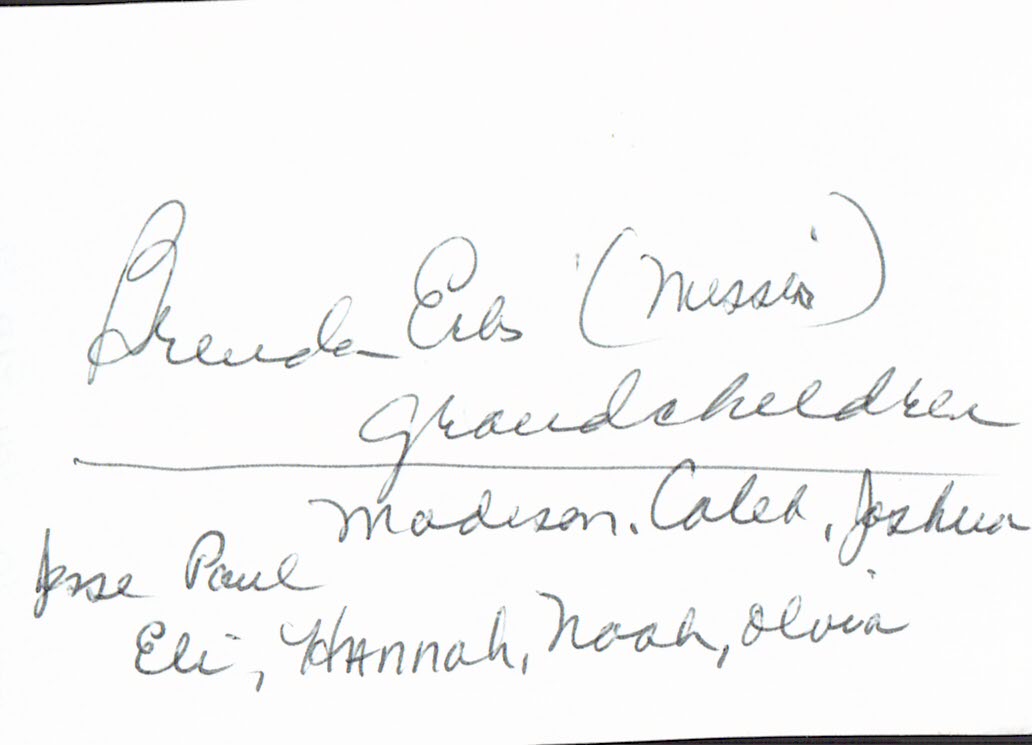 Brenda Erbs (Messia)
grandchildren
Madison, Caleb, Joshua
Jesse Paul
Eli, HAnnah, Noah, Olvia